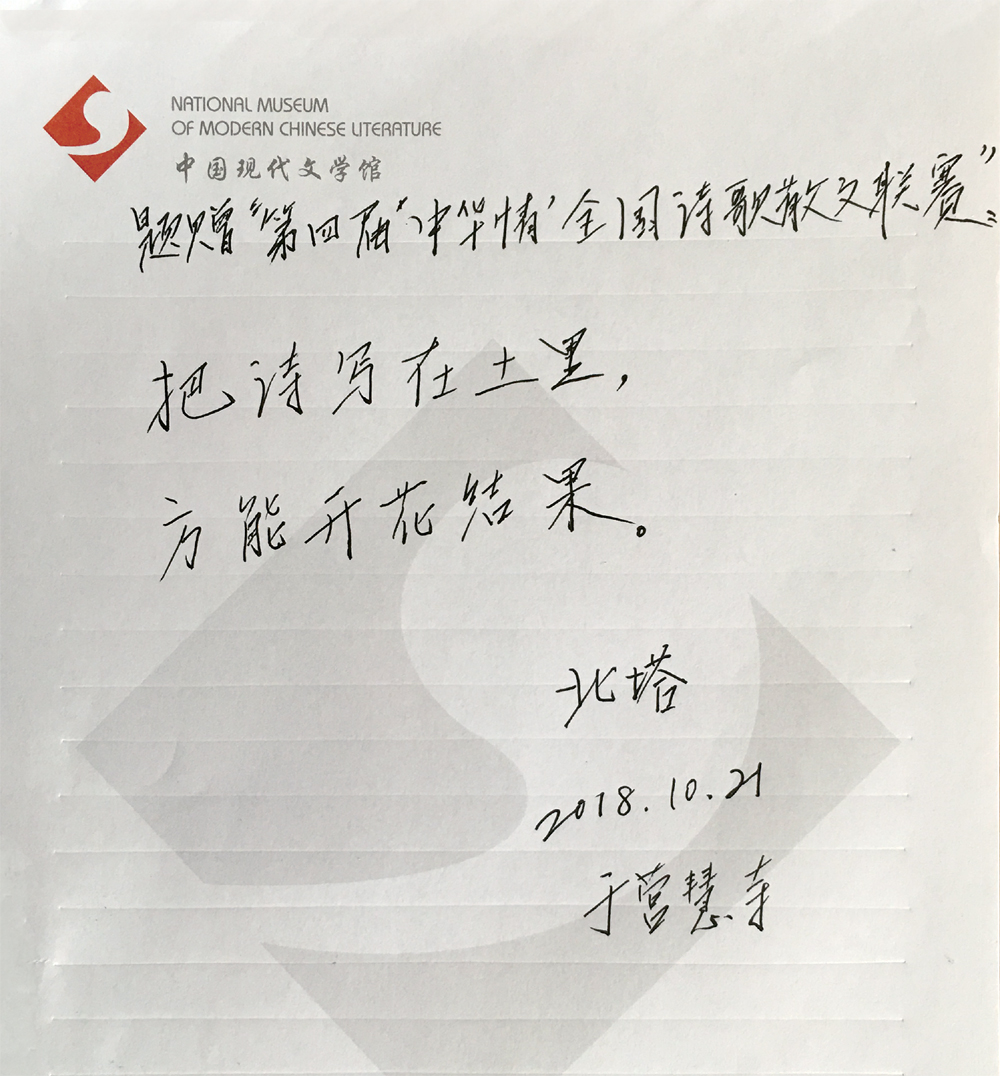 NATIONAL MUSEUM
OF MODERN CHINESE LITERATURE
中国现代文学馆
题赠“第四届‘中华情’全国诗歌散文联赛”:
把诗写在土里,
方能开花结果。
北塔
2018.10.21
于营慧寺